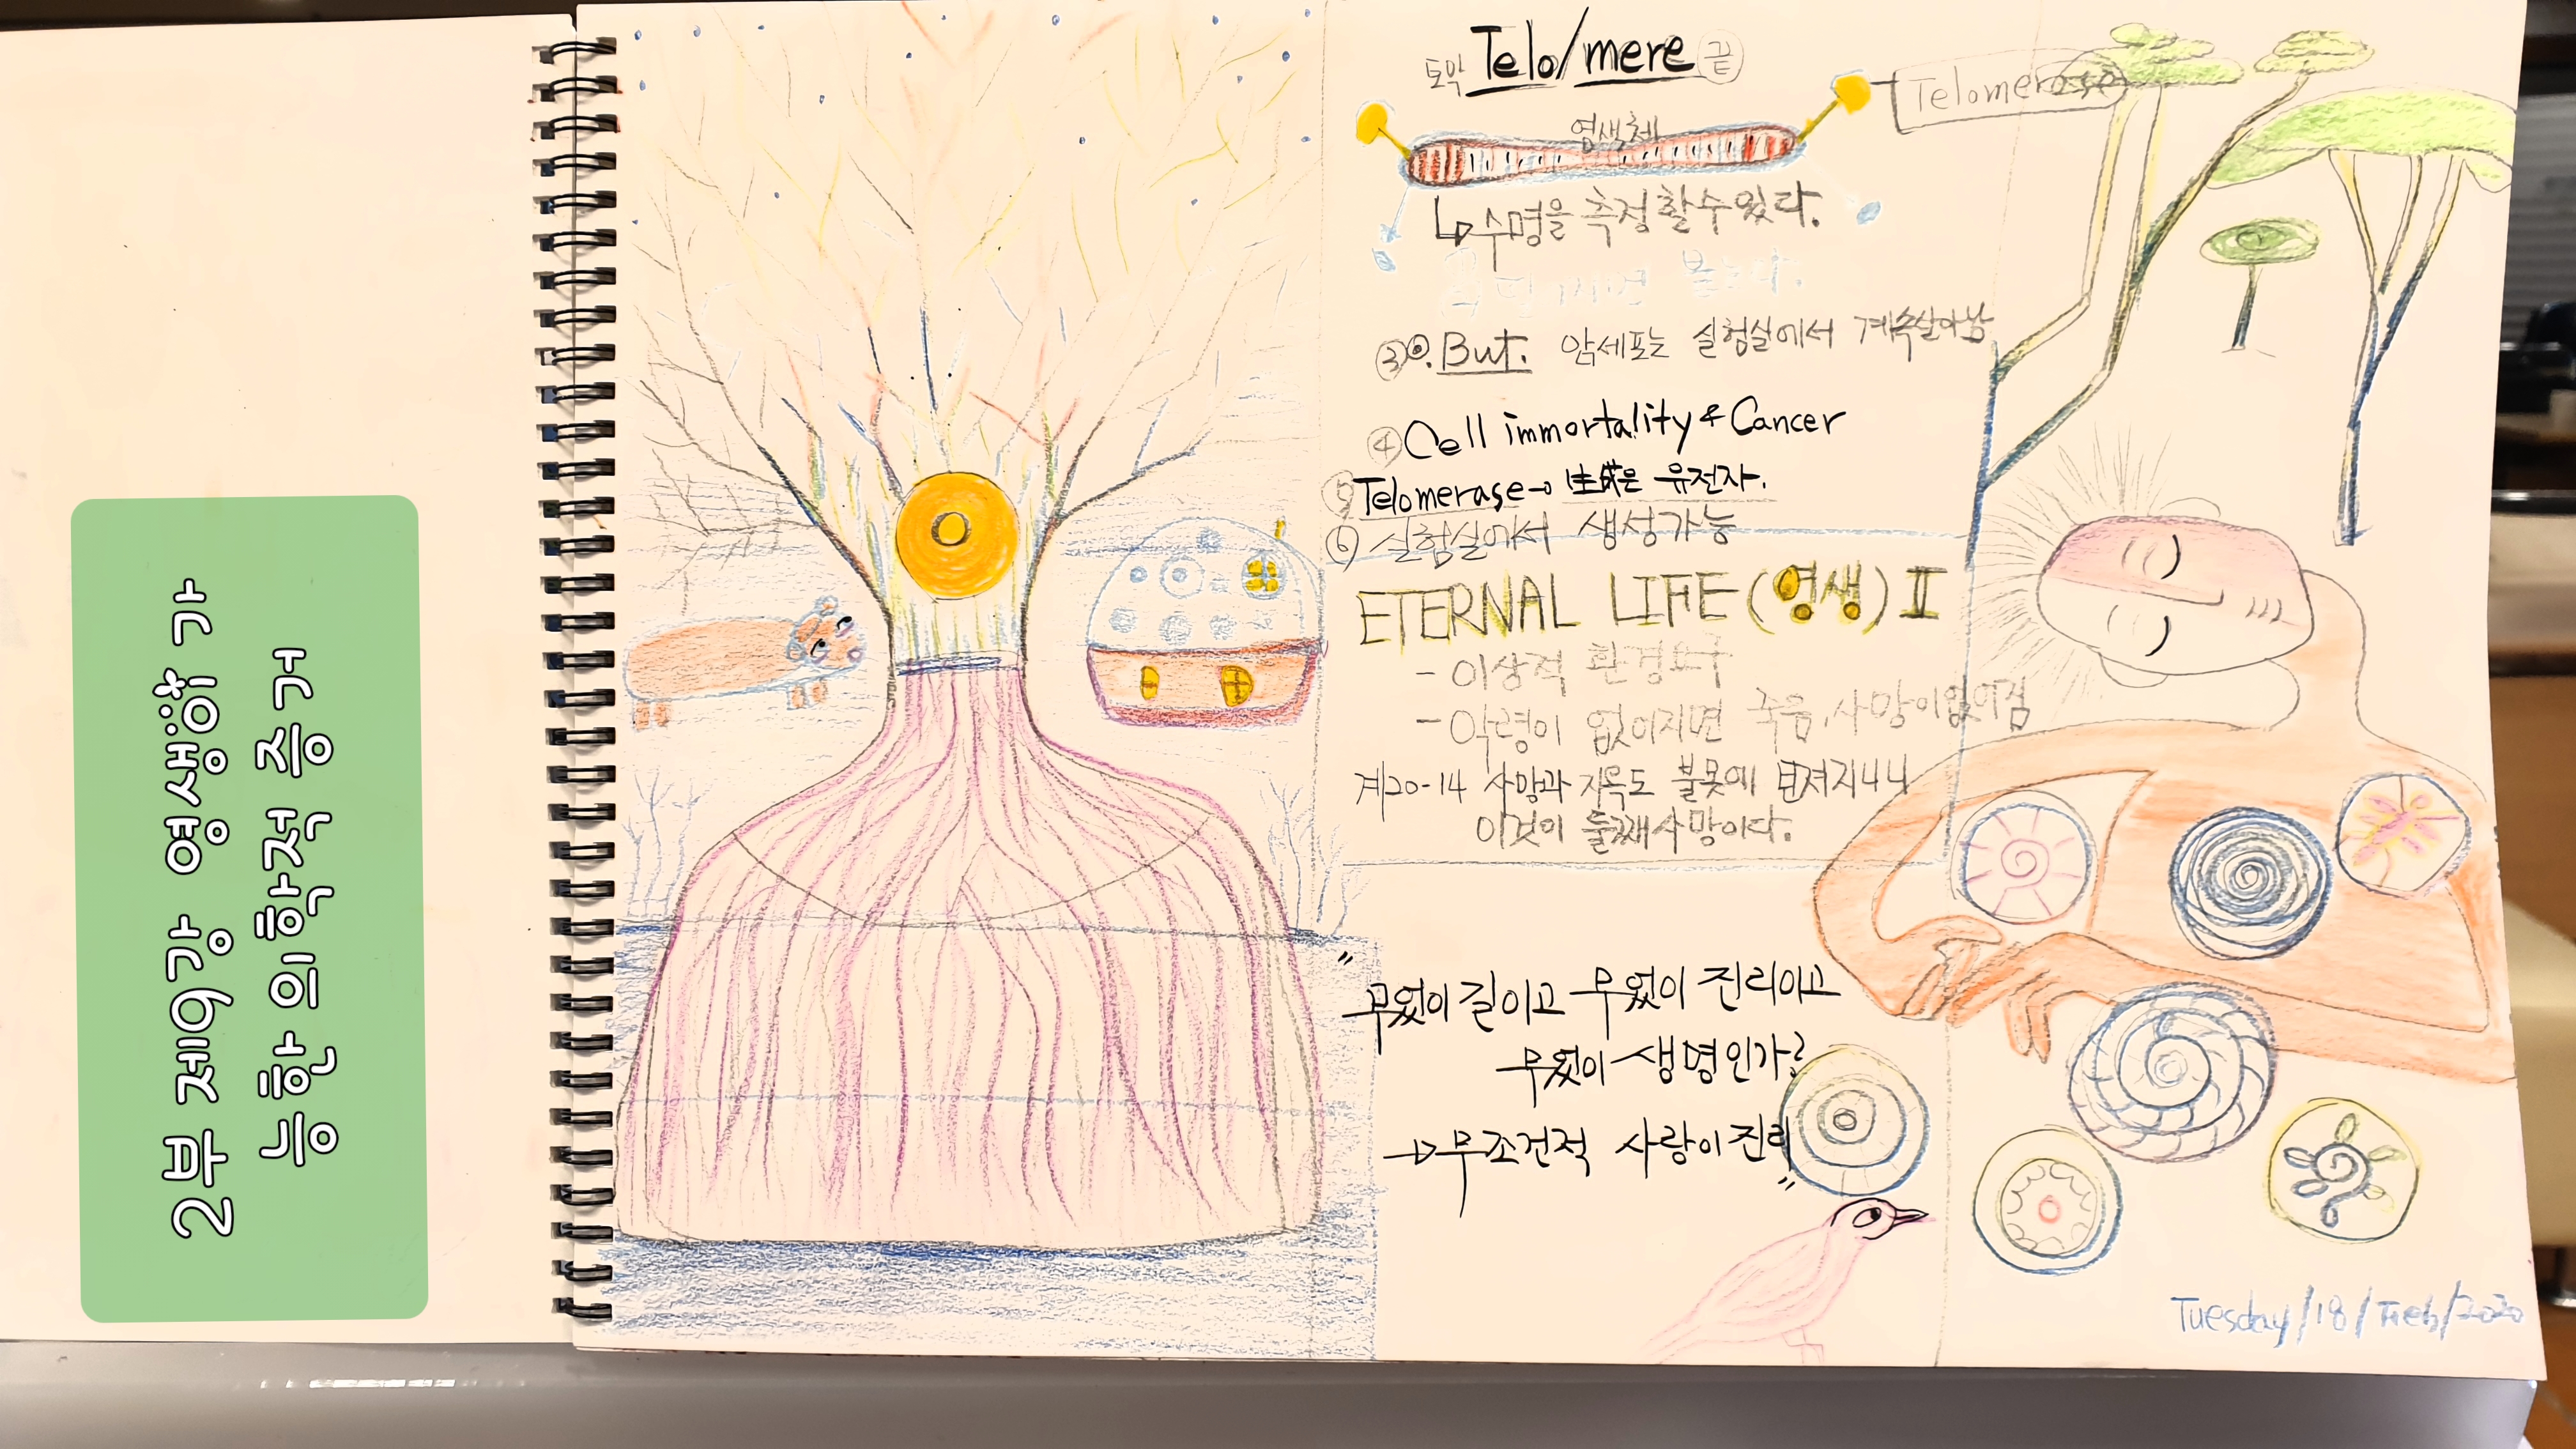 2부 제19강 영생이 가
능한 의학적 증거
토막 Telo/mere 끝
Telomerase
염색체
↳ 수명을 측정 할 수 있다.
③ But. 암세포는 실험실에서 계속살아남
④ Cell immortality & Cancer
⑤ Telomerase→ 生成은 유전자.
⑥ 실험실에서 생성가능
ETERNAL LIFE (영생) II
- 이상적 환경요구
- 악령이 없어지면 죽음, 사망이없어짐
계20-14 사망과 지옥도 불못에 던져지니
이것이 둘째사망이다.
"무엇이 길이고 무엇이 진리이고
무엇이 생명인가?
→무조건적 사랑이 진리"
Tuesday/18/Feb/2020